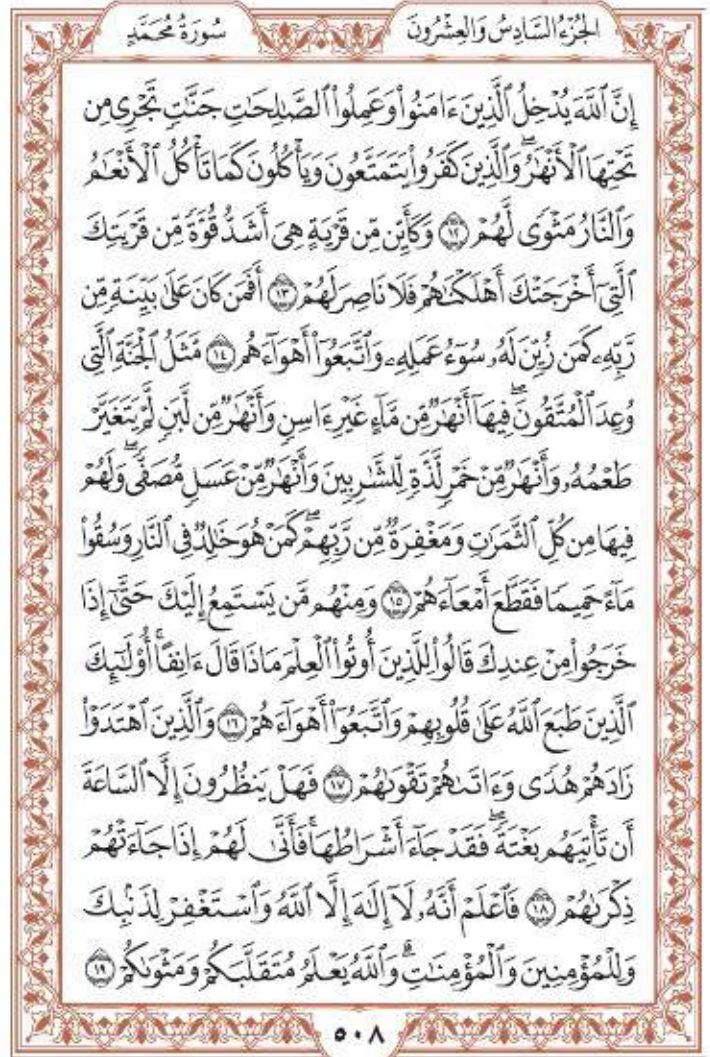 الجُزْءُ السَّادِسُ وَالعِشْرُونَ
سُورَةُ مُحَمَّدٍ
إِنَّ ٱللَّهَ يُدْخِلُ ٱلَّذِينَ ءَامَنُوا۟ وَعَمِلُوا۟ ٱلصَّـٰلِحَـٰتِ جَنَّـٰتٍ تَجْرِى مِن
تَحْتِهَا ٱلْأَنْهَـٰرُ ۖ وَٱلَّذِينَ كَفَرُوا۟ يَتَمَتَّعُونَ وَيَأْكُلُونَ كَمَا تَأْكُلُ ٱلْأَنْعَـٰمُ
وَٱلنَّارُ مَثْوًى لَّهُمْ ١٢ وَكَأَيِّن مِّن قَرْيَةٍ هِىَ أَشَدُّ قُوَّةً مِّن قَرْيَتِكَ
ٱلَّتِىٓ أَخْرَجَتْكَ أَهْلَكْنَـٰهُمْ فَلَا نَاصِرَ لَهُمْ ١٣ أَفَمَن كَانَ عَلَىٰ بَيِّنَةٍ مِّن
رَّبِّهِۦ كَمَن زُيِّنَ لَهُۥ سُوٓءُ عَمَلِهِۦ وَٱتَّبَعُوٓا۟ أَهْوَآءَهُم ١٤ مَّثَلُ ٱلْجَنَّةِ ٱلَّتِى
وُعِدَ ٱلْمُتَّقُونَ ۖ فِيهَآ أَنْهَـٰرٌ مِّن مَّآءٍ غَيْرِ ءَاسِنٍ وَأَنْهَـٰرٌ مِّن لَّبَنٍ لَّمْ يَتَغَيَّرْ
طَعْمُهُۥ وَأَنْهَـٰرٌ مِّنْ خَمْرٍ لَّذَّةٍ لِّلشَّـٰرِبِينَ وَأَنْهَـٰرٌ مِّنْ عَسَلٍ مُّصَفًّى ۖ وَلَهُمْ
فِيهَا مِن كُلِّ ٱلثَّمَرَٰتِ وَمَغْفِرَةٌ مِّن رَّبِّهِمْ ۖ كَمَنْ هُوَ خَـٰلِدٌ فِى ٱلنَّارِ وَسُقُوا۟
مَآءً حَمِيمًا فَقَطَّعَ أَمْعَآءَهُمْ ١٥ وَمِنْهُم مَّن يَسْتَمِعُ إِلَيْكَ حَتَّىٰٓ إِذَا
خَرَجُوا۟ مِنْ عِندِكَ قَالُوا۟ لِلَّذِينَ أُوتُوا۟ ٱلْعِلْمَ مَاذَا قَالَ ءَانِفًا ۚ أُو۟لَـٰٓئِكَ
ٱلَّذِينَ طَبَعَ ٱللَّهُ عَلَىٰ قُلُوبِهِمْ وَٱتَّبَعُوٓا۟ أَهْوَآءَهُمْ ١٦ وَٱلَّذِينَ ٱهْتَدَوْا۟
زَادَهُمْ هُدًى وَءَاتَىٰهُمْ تَقْوَىٰهُمْ ١٧ فَهَلْ يَنظُرُونَ إِلَّا ٱلسَّاعَةَ
أَن تَأْتِيَهُم بَغْتَةً ۖ فَقَدْ جَآءَ أَشْرَاطُهَا ۚ فَأَنَّىٰ لَهُمْ إِذَا جَآءَتْهُمْ
ذِكْرَىٰهُمْ ١٨ فَٱعْلَمْ أَنَّهُۥ لَآ إِلَـٰهَ إِلَّا ٱللَّهُ وَٱسْتَغْفِرْ لِذَنۢبِكَ
وَلِلْمُؤْمِنِينَ وَٱلْمُؤْمِنَـٰتِ ۗ وَٱللَّهُ يَعْلَمُ مُتَقَلَّبَكُمْ وَمَثْوَىٰكُمْ ١٩
٥٠٨